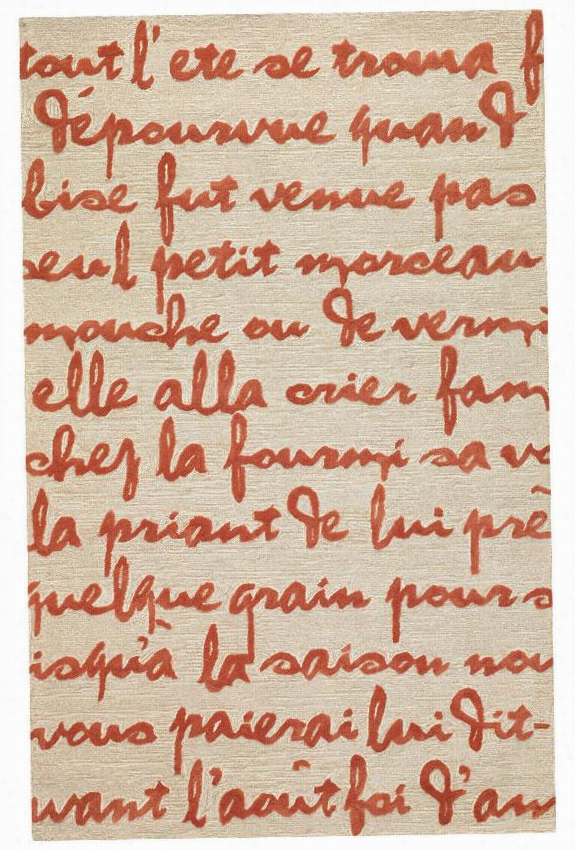 tout l'ete se trouva f
dépourvue quand
bise fut venue pas
seul petit morceau
mouche ou de vermi
elle alla crier fam
chez la fourmi sa vo
la priant de lui prê
quelque grain pour s
isqu'à la saison nou
vous paierai lui dit-
uvant l'août foi d'an